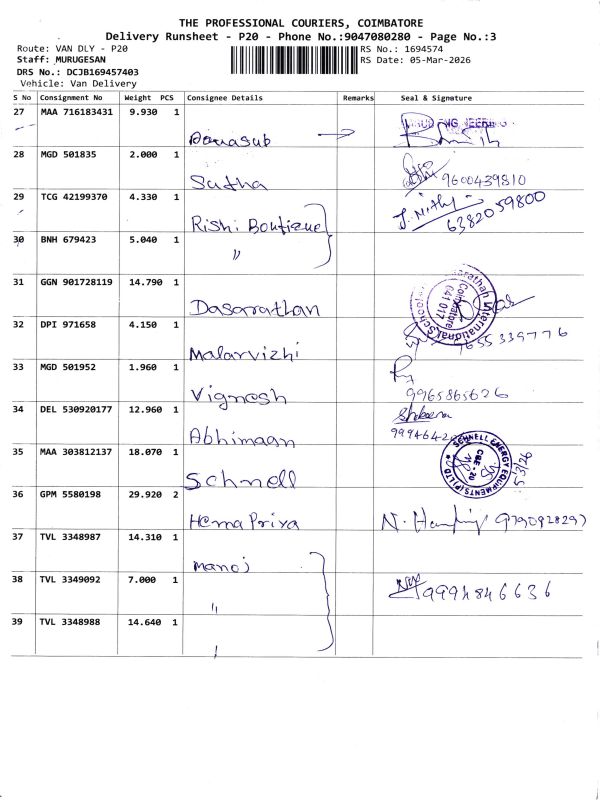 THE PROFESSIONAL COURIERS, COIMBATORE
Delivery Runsheet - P20 - Phone No.:9047080280 - Page No.:3
Route: VAN DLY - P20 RS No.: 1694574
Staff: MURUGESAN RS Date: 05-Mar-2026
DRS No.: DCJB169457403
Vehicle: Van Delivery
S No Consignment No Weight PCS Consignee Details Remarks Seal & Signature
27 MAA 716183431 9.930 1
28 MGD 501835 2.000 1
Sutha 9600439810
29 TCG 42199370 4.330 1
Rishi Boutique J. Nithy 6382059800
30 BNH 679423 5.040 1
"
31 GGN 901728119 14.790 1
Dasarathan
Coimbatore
641 017
32 DPI 971658 4.150 1
Malarvizhi 7655339776
33 MGD 501952 1.960 1
Vignesh 9965865626
34 DEL 530920177 12.960 1
Abhimaan
35 MAA 303812137 18.070 1
Schnell
SCHNELL ENERGY EQUIPMENTS (P) LTD
CBE - 20
5/3/26
36 GPM 5580198 29.920 2
Hema Priya 9790928297
37 TVL 3348987 14.310 1
Manoj
38 TVL 3349092 7.000 1
" 9994846636
39 TVL 3348988 14.640 1